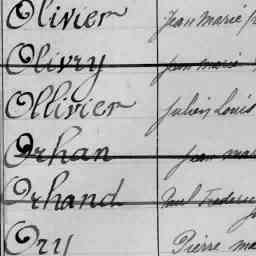 Olivier Jean Marie
Olivry Jean Marie
Ollivier Julien Louis
Orhan Jean
Orhand Paul Frederic
Ory Pierre